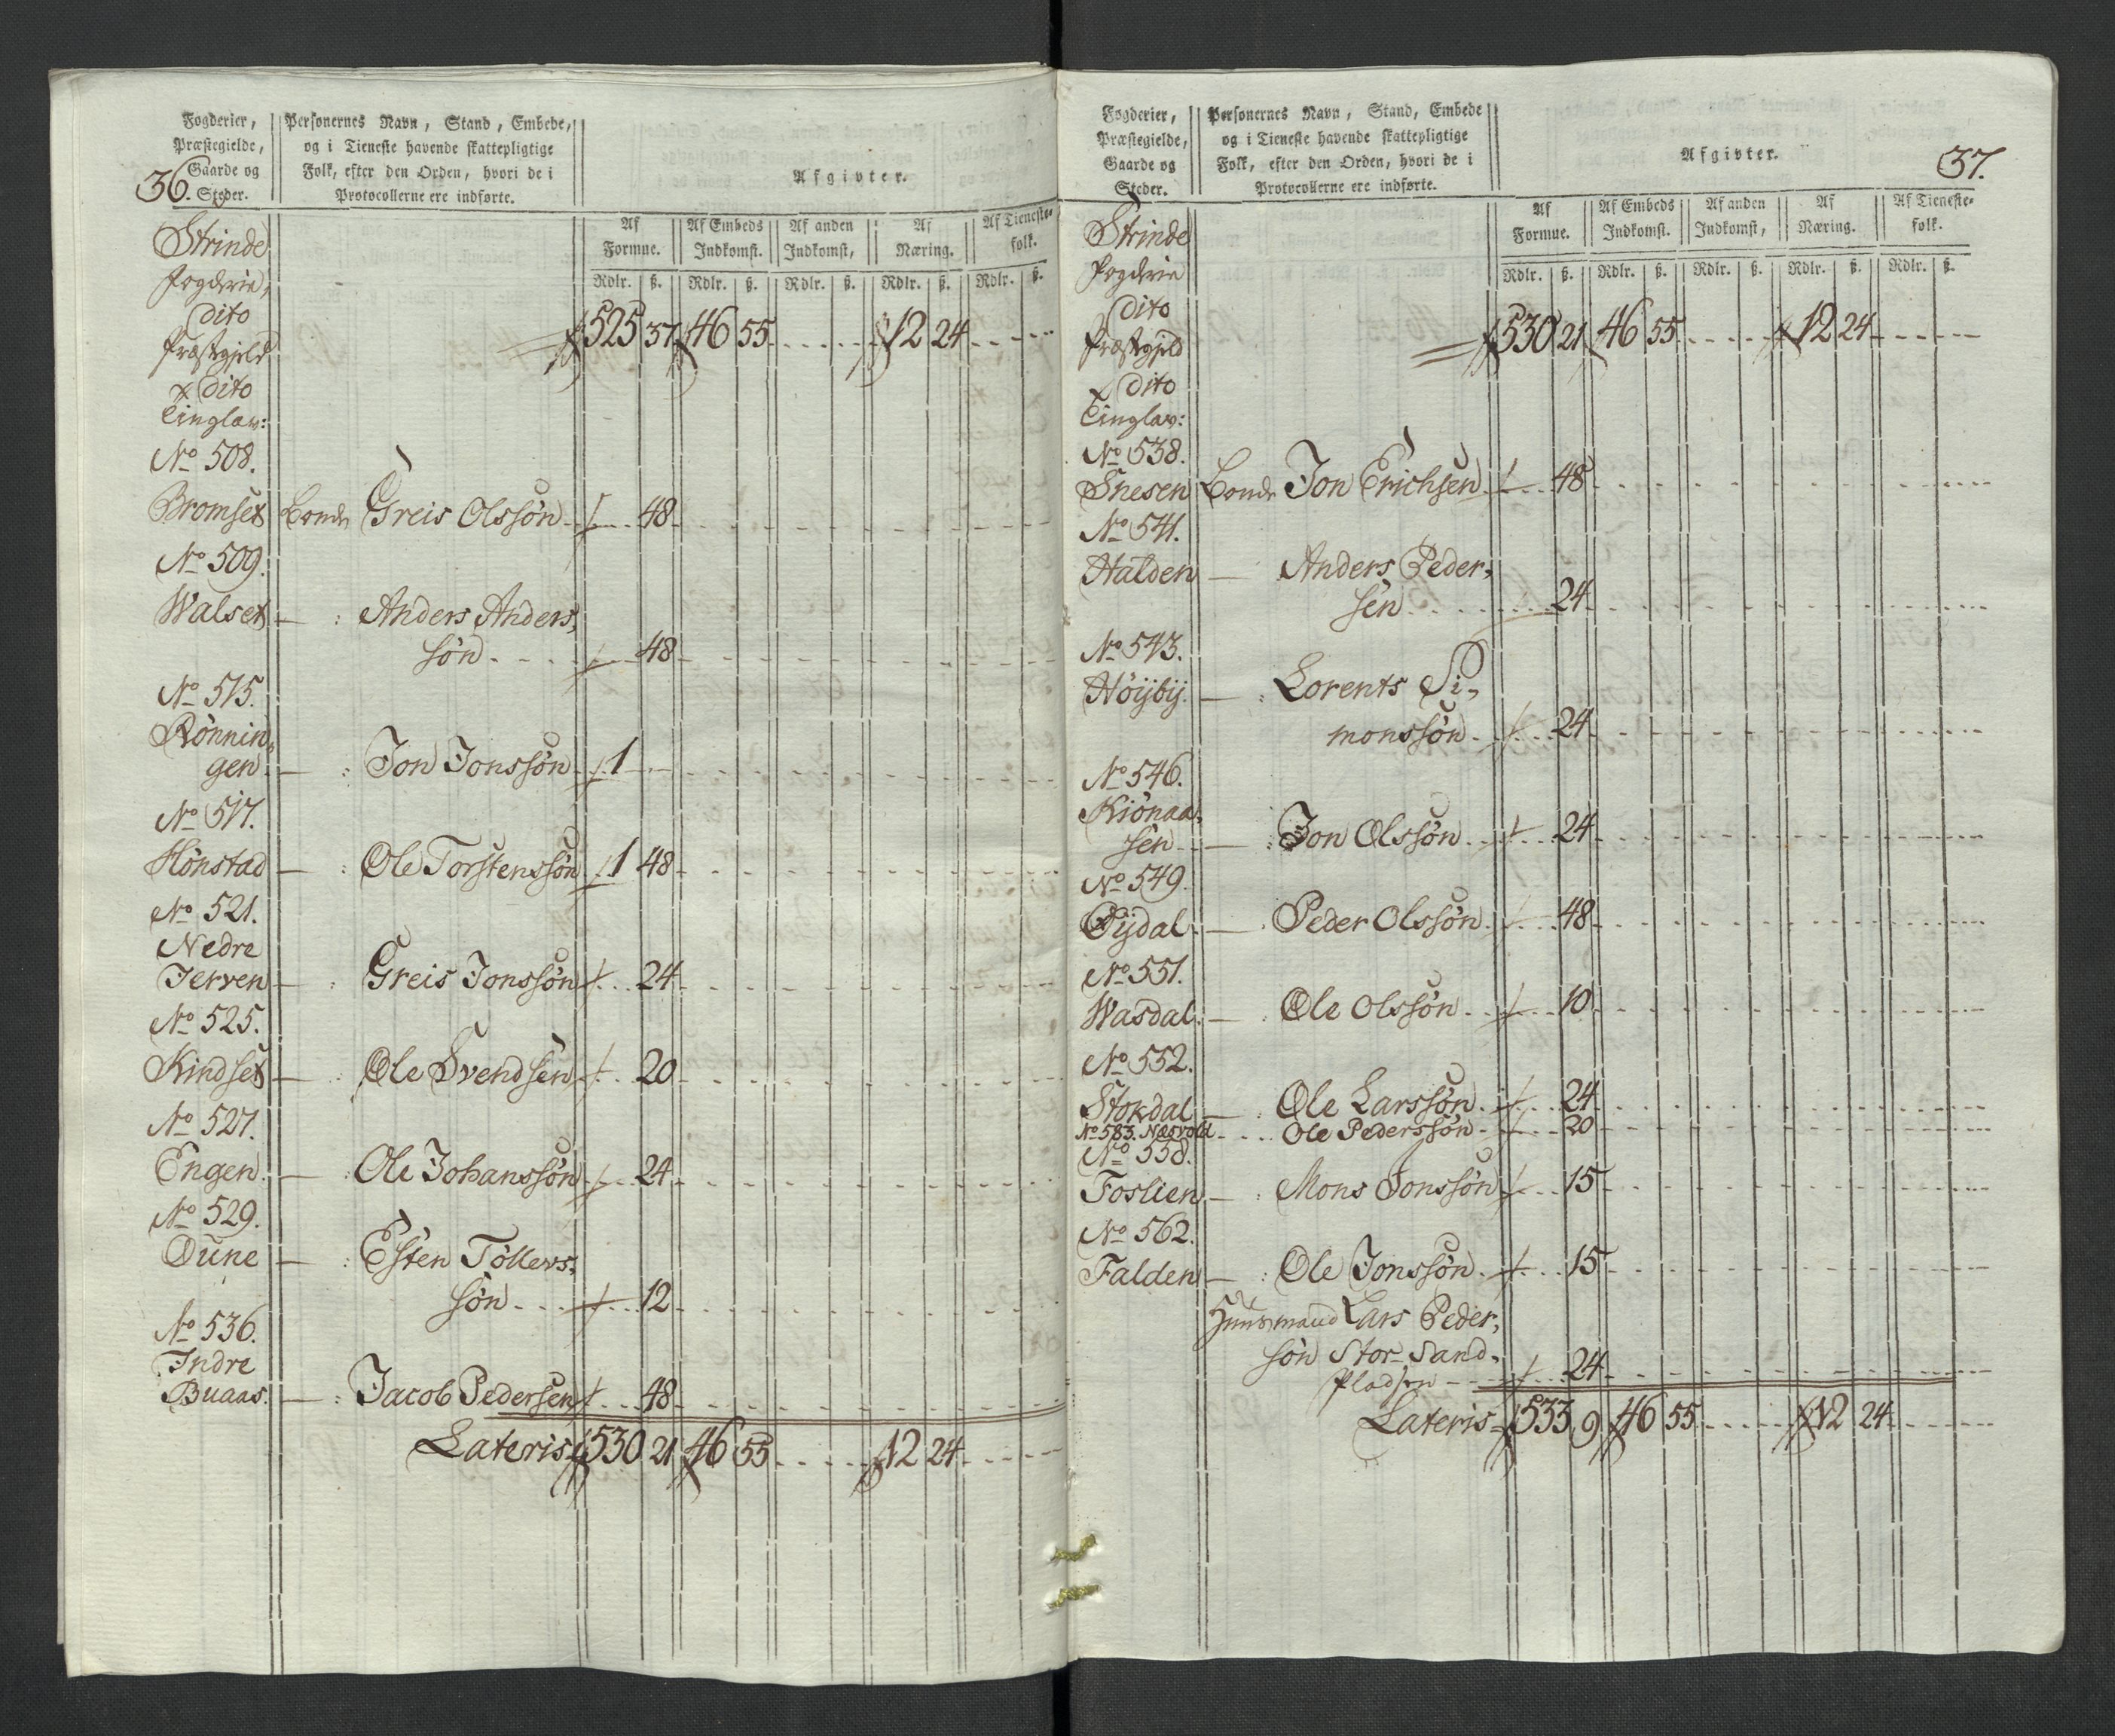 Fogderier,
Præstegielde,
Gaarde og
Steder.
36.
Personernes Navn, Stand, Embede,
og i Tieneste havende skattepligtige
Folk, efter den Orden, hvori de i
Protocollerne ere indførte.
Afgivter.
Af Formue. Af Embeds Indkomst. Af anden Indkomst, Af Næring. Af Tieneste- folk.
Rdlr. ß. Rdlr. ß. Rdlr. ß. Rdlr. ß. Rdlr. ß.
Strinde
Fogderie,
Dito
Præstgjeld 525 37 46 55 12 24
x Dito
Tinglav:
No 508.
Bromset Bonde Greis Olssøn 48
No 509.
Walset — : Anders Anders,
søn 48
No 515.
Rønnin,
gen — : Jon Jonssøn 1
No 517.
Hønstad — : Ole Torstenssøn 1 48
No 521.
Nedre
Jerven — : Greis Jonssøn 24
No 525.
Kindset — : Ole Svendsen 20
No 527.
Engen — : Ole Johanssøn 24
No 529.
Dune — : Esten Tøllers,
søn 12
No 536.
Indre
Buaas. — : Jacob Pedersen 48
Lateris 530 21 46 55 12 24
Fogderier,
Præstegielde,
Gaarde og
Steder.
Personernes Navn, Stand, Embede
og i Tieneste havende skattepligtige
Folk, efter den Orden, hvori de i
Protocollerne ere indførte.
Afgivter.
37.
Af Formue. Af Embeds Indkomst. Af anden Indkomst, Af Næring. Af Tieneste- folk.
Rdlr. ß. Rdlr. ß. Rdlr. ß. Rdlr. ß. Rdlr. ß.
Strinde
Fogderie
Dito
Præstgjeld 530 21 46 55 12 24
x Dito
Tinglav:
No 538.
Snesen Bonde Jon Erichsen 48
No 541.
Halden — Anders Peder,
sen 24
No 543.
Høijbij. — : Lorents Si,
monssøn 24
No 546.
Kiønaa,
sen — : Jon Olssøn 24
No 549.
Øijdal — Peder Olssøn 48
No 551.
Wasdal — : Ole Olssøn 10
No 552.
Stokdal — : Ole Larssøn 24
No 583. Næsvold Ole Pederssøn 20
No 558.
Foslien — : Mons Jonssøn 15
No 562.
Falden — : Ole Jonssøn 15
Huusmand Lars Peder,
søn Stor-Sand,
Pladsen 24
Lateris 533 9 46 55 12 24